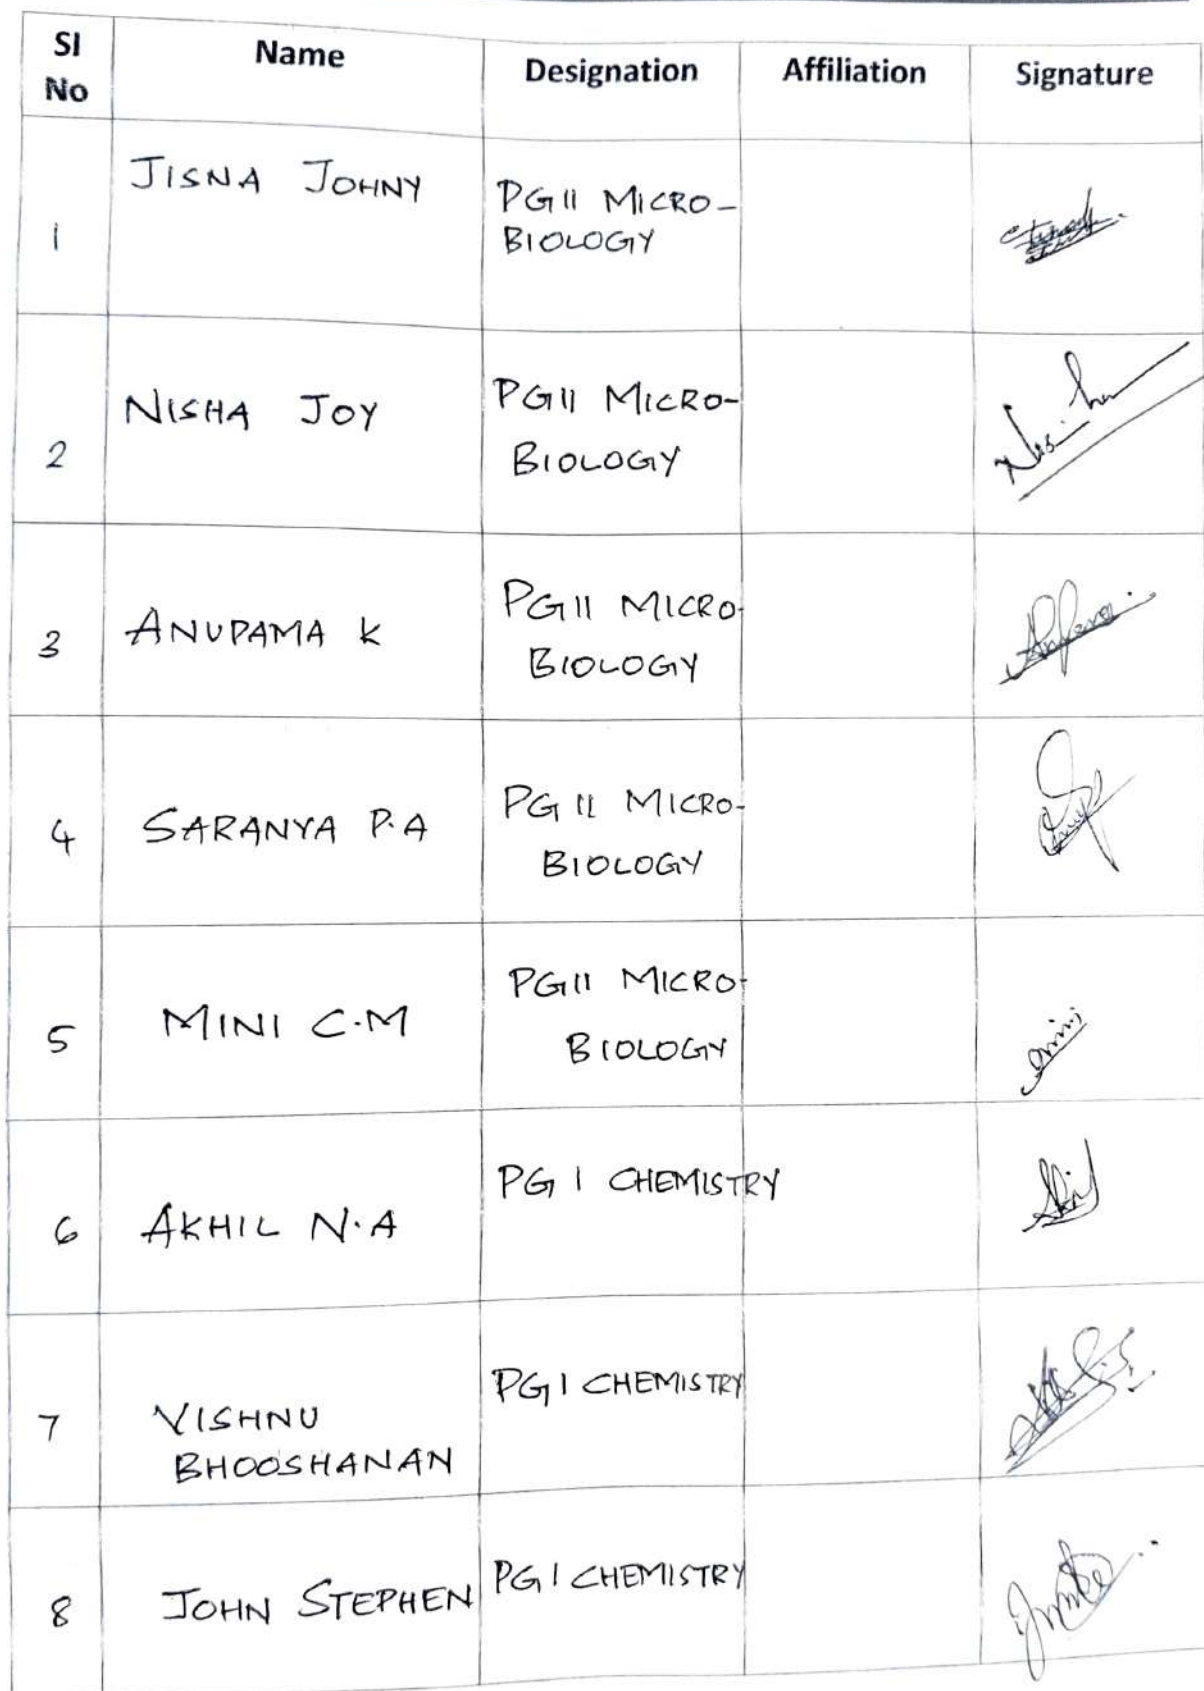 Sl No Name Designation Affiliation Signature
1 JISNA JOHNY PG II MICRO-
BIOLOGY
2 NISHA JOY PG II MICRO-
BIOLOGY
3 ANUPAMA K PG II MICRO-
BIOLOGY
4 SARANYA P.A PG II MICRO-
BIOLOGY
5 MINI C.M PG II MICRO-
BIOLOGY
6 AKHIL N.A PG I CHEMISTRY
7 VISHNU
BHOOSHANAN PG I CHEMISTRY
8 JOHN STEPHEN PG I CHEMISTRY